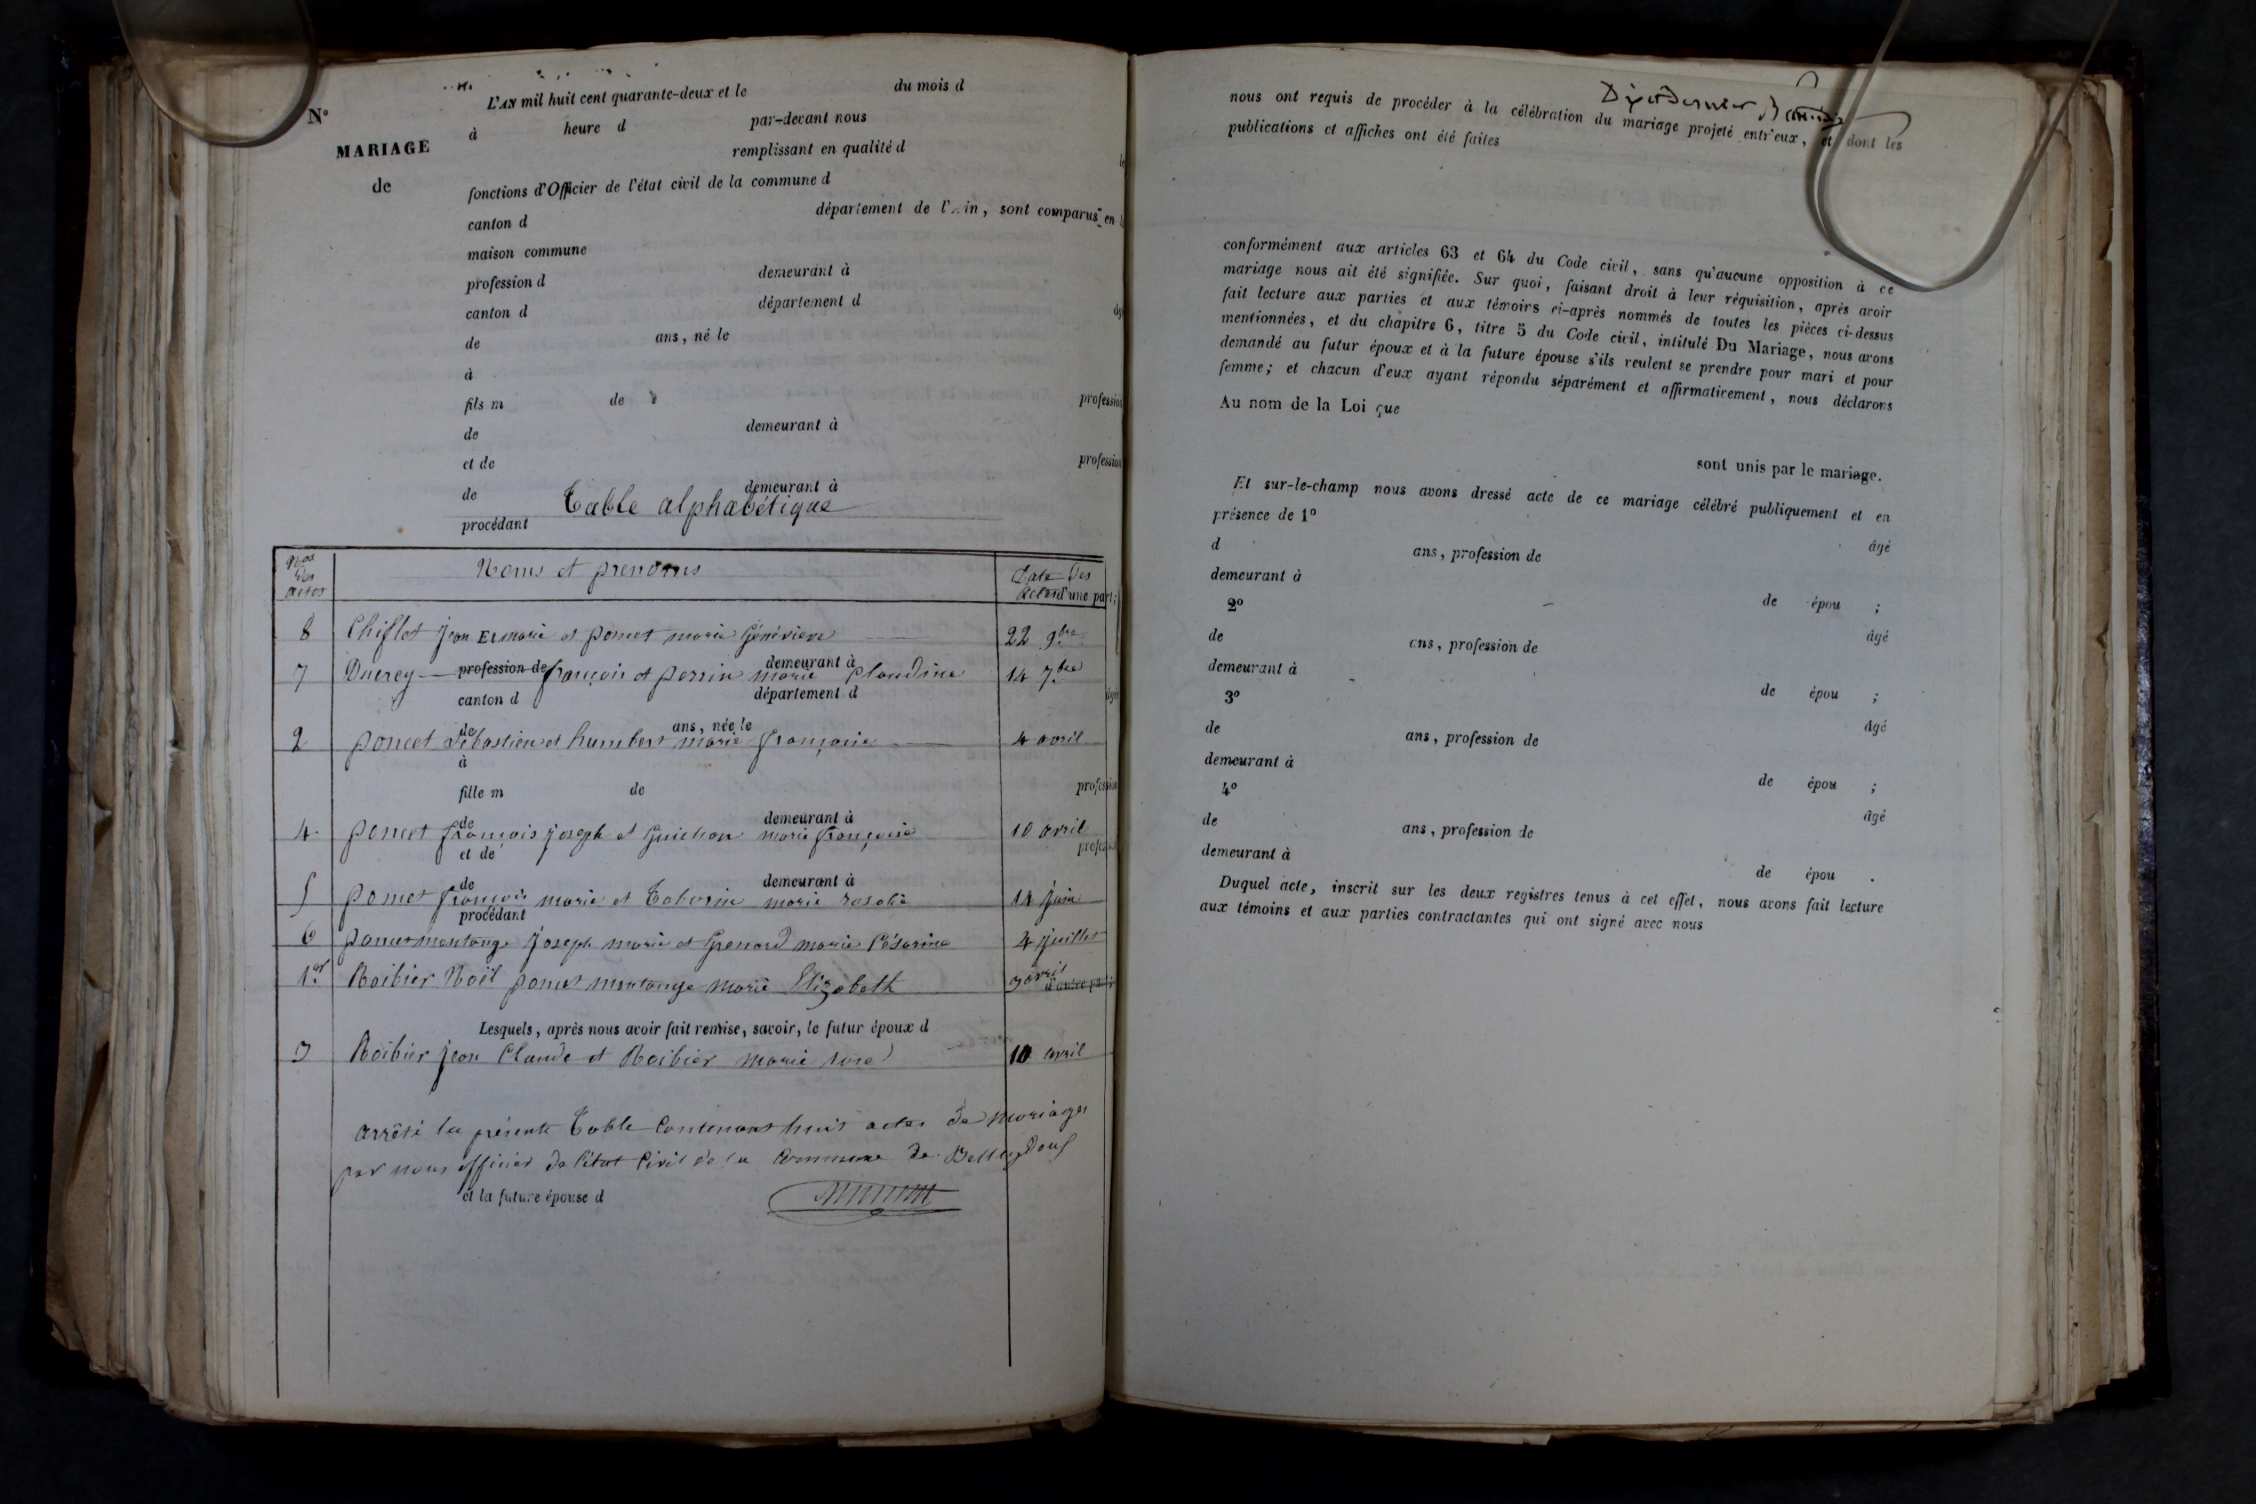 N°
MARIAGE
de
L'AN mil huit cent quarante-deux et le du mois d
à heure d par-devant nous
remplissant en qualité d
fonctions d'Officier de l'état civil de la commune d
canton d département de l'Ain, sont comparus en
maison commune
profession d demeurant à
canton d département d
de ans, né le
à
fils m de profession
de demeurant à
et de profession
de demeurant à
Table alphabétique
procédant
Nos des actes Noms et prenoms Date Des Actes d'une part;
8 Chiflet jean Et marie et poncet marie Généviève 22 9bre
7 Ducrey profession de françois et perrin marie Claudine 14 7bre
demeurant à
canton d département d
de ans, née le
2 poncet sébastien et humbert marie françoise 4 avril
à
fille m de profession
de demeurant à
4. poncet françois joseph et Guichon marie françoise 10 avril
et de
de demeurant à
5 poncet françois marie et Taborin marie rosalie 14 juin
procédant
6 poncet montange joseph marie et Grenard marie Césarine 4 juillet
1er Roibier Noël poncet montange marie Elizabeth 3 avril
d'autre part
Lesquels, après nous avoir fait remise, savoir, le futur époux d
3 Roibier jean Claude et Roibier marie rose 10 avril
arrêté la présente Table Contenant huit actes de mariages
par nous officier de l'état Civil de la Commune de Belleydoux
et la future épouse d
nous ont requis de procéder à la célébration du mariage projeté entr'eux, et dont les
publications et affiches ont été faites
conformément aux articles 63 et 64 du Code civil, sans qu'aucune opposition à ce
mariage nous ait été signifiée. Sur quoi, faisant droit à leur réquisition, après avoir
fait lecture aux parties et aux témoins ci-après nommés de toutes les pièces ci-dessus
mentionnées, et du chapitre 6, titre 5 du Code civil, intitulé Du Mariage, nous avons
demandé au futur époux et à la future épouse s'ils veulent se prendre pour mari et pour
femme; et chacun d'eux ayant répondu séparément et affirmativement, nous déclarons
Au nom de la Loi que
sont unis par le mariage.
Et sur-le-champ nous avons dressé acte de ce mariage célébré publiquement et en
présence de 1°
d ans, profession de âgé
demeurant à
2° de épou ;
de ans, profession de âgé
demeurant à
3° de épou ;
de ans, profession de âgé
demeurant à
4° de épou ;
de ans, profession de âgé
demeurant à
de épou .
Duquel acte, inscrit sur les deux registres tenus à cet effet, nous avons fait lecture
aux témoins et aux parties contractantes qui ont signé avec nous